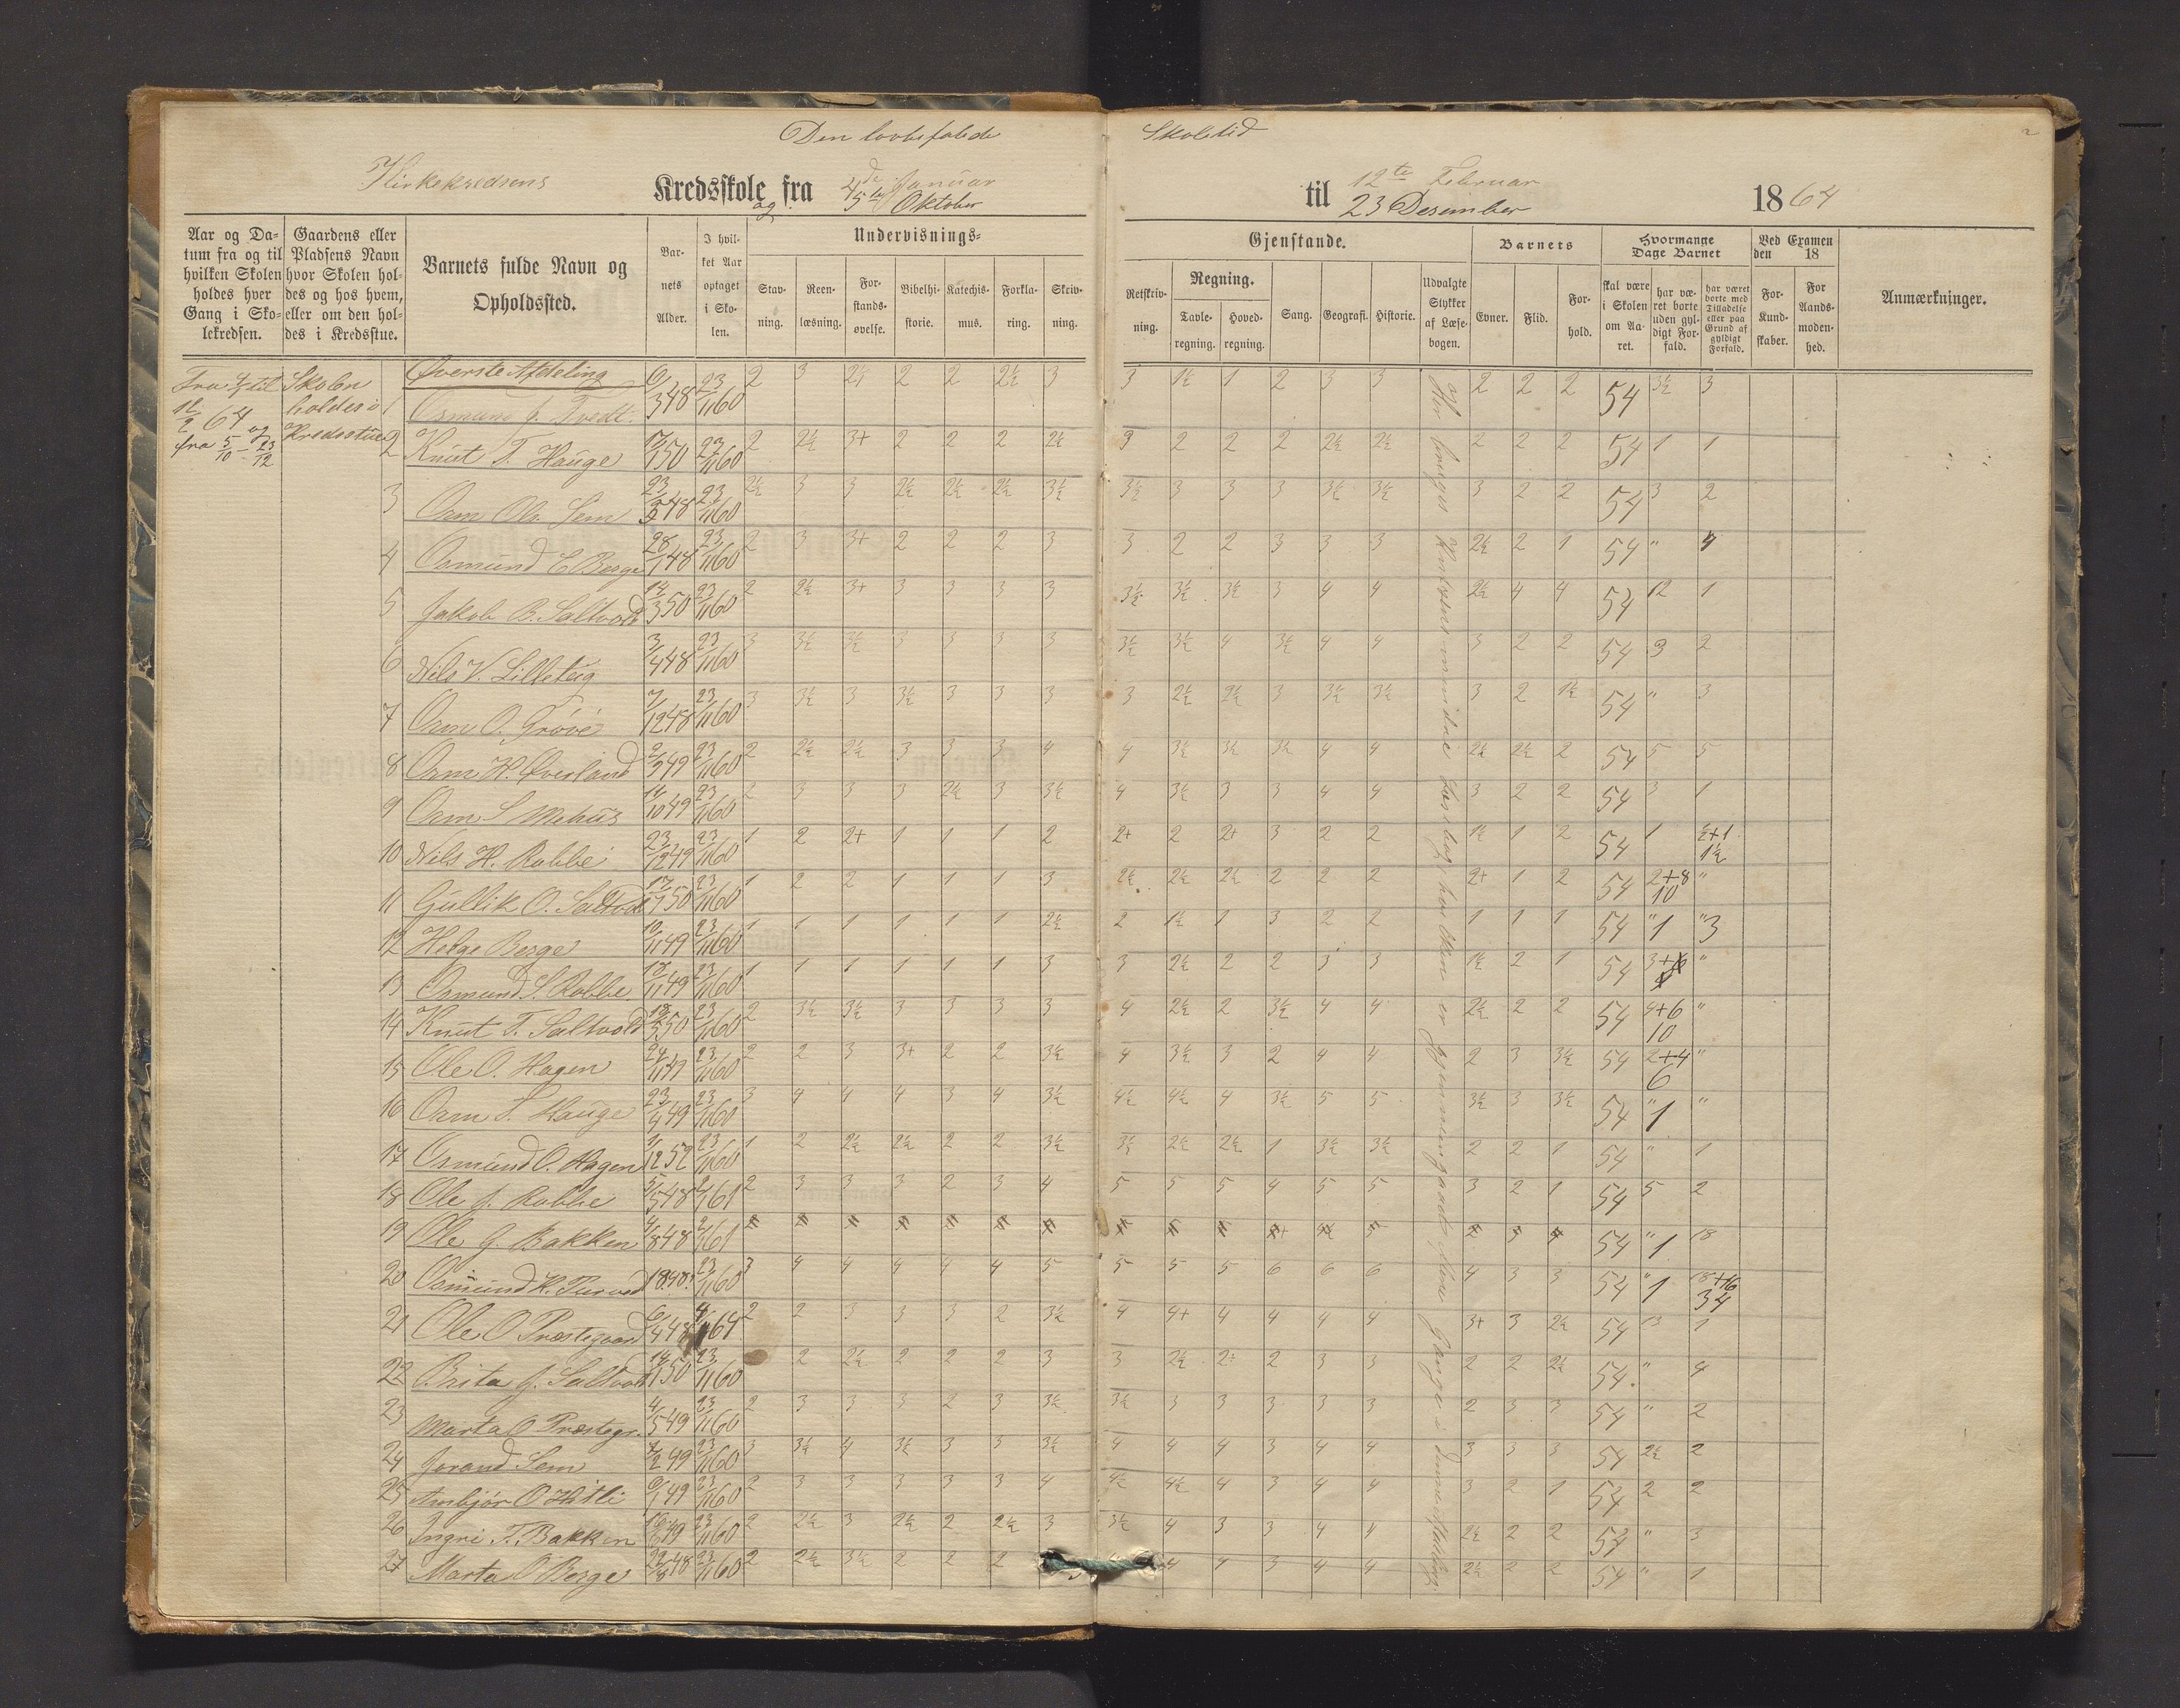 Den lovbefalede Skoletid
Kirkekredsens Kredsskole fra 4de Januar til 12te Februar 1864
og 5te Oktober 23 Desember
2
Aar og Da-
tum fra og til
hvilken Skolen
holdes hver
Gang i Sko-
lekredsen.
Gaardens eller
Pladsens Navn
hvor Skolen hol-
des og hos hvem,
eller om den hol-
des i Kredsstue.
Barnets fulde Navn og
Opholdssted.
Bar-
nets
Alder.
I hvil-
ket Aar
optaget
i Sko-
len.
Undervisnings-
Stav-
ning.
Reen-
læsning.
For-
stands-
øvelse.
Bibelhi-
storie.
Katechis-
mus.
Forkla-
ring.
Skriv-
ning.
Gjenstande.
Retskriv-
ning.
Regning.
Tavle-
regning.
Hoved-
regning.
Sang.
Geografi.
Historie.
Udvalgte
Stykker
af Læse-
bogen.
Barnets
Evner.
Flid.
For-
hold.
Hvormange
Dage Barnet
skal være
i Skolen
om Aa-
ret.
har væ-
ret borte
uden gyl-
digt For-
fald.
har været
borte med
Tilladelse
eller paa
Grund af
gyldigt
Forfald.
Ved Examen
den 18
For-
Kund-
skaber.
For
Aands-
moden-
hed.
Anmærkninger.
Fra 4/1 til
12/2 64 og
fra 5/10 - 23/12
Skolen
holdes i
Kredsstue
Øverste Afdeling
1 Osmund J. Tvedt. 6/3 48 23/11 60 2 3 2½ 2 2 2½ 3 3 1½ 1 2 3 3 2 2 2 54 3½ 3
2 Knut T. Hauge 17/1 50 23/11 60 2 2½ 3+ 2 2 2 2½ 3 2 2 2 2½ 2½ 2 2 2 54 1 1
3 Orm Ols. Sem 48 23/11 60 2½ 3 3 2½ 2½ 2½ 3½ 3½ 3 3 3 3½ 3½ 3 2 2 54 3 2
4 Osmund E Berge 28/1 48 23/11 60 2 3 3+ 2 2 2 3 3 2 2 3 3 3 2½ 2 1 54 " 4
5 Jakob B. Saltvold 14/3 50 23/11 60 2 2½ 3+ 3 3 3 3 3½ 3½ 3½ 3 4 4 2½ 4 4 54 12 1
6 Nils V. Lilleteig 3/4 48 23/11 60 3 3½ 3½ 3 3 3 3 3½ 3½ 4 3½ 4 4 3 2 2 54 3 2
7 Orm O. Grøve 7/12 48 23/11 60 3 3½ 3 3½ 3 3 3 3 2½ 2½ 3 3½ 3½ 3 2 1½ 54 " 3
8 Orm H. Øverland 2/9 49 23/11 60 2 2½ 2½ 3 3 3 4 4 3½ 3½ 3½ 4 4 2½ 2½ 2 54 5 5
9 Orm S Mehus 14/10 49 23/11 60 2 3 3 3 2½ 3 3½ 4 3½ 3 3 4 4 3 2 2 54 3 1
10 Nils H. Rabbe 23/12 49 23/11 60 1 2 2+ 1 1 1 2 2+ 2 2+ 3 2 2 1½ 1 2 54 1 ½+1 1½
11 Gullik O. Saltvold 17/1 50 23/11 60 1 2 2 1 1 1 3 2½ 2½ 2½ 2 2 2 2+ 1 2 54 2+8 10 "
12 Helge Berge 10/11 49 23/11 60 1 1 1 1 1 1 2½ 2 1½ 1 3 2 2 1 1 1 54 "1 "3
13 Osmund S. Rabbe 18/11 49 23/11 60 1 1 1 1 1 1 3 3 2½ 2 2 3 3 1½ 2 1 54 "
14 Knut T. Saltvold 50 23/11 60 2 3½ 3½ 3 3 3 3 4 2½ 2 3½ 4 4 2½ 2 2 54 4+6 10 "
15 Ole O. Hagen 24/11 49 23/11 60 2 2 3 3+ 2 2 3½ 4 3½ 3 2 4 4 2 3 3½ 54 2+4 6 "
16 Orm S. Hauge 49 23/11 60 3 4 4 4 3 4 3½ 4½ 4½ 4 3½ 5 5 3½ 3 3½ 54 "1 "
17 Osmund O. Hagen 1/12 52 23/11 60 1 2 2½ 2½ 2 2 3½ 3½ 2½ 2½ 1 3½ 3½ 2 2 1 54 " 1
18 Ole J. Rabbe 5/5 48 61 2 3 3 3 2 3 4 5 5 5 4 5 5 3 2 1 54 5 2
19 Ole G. Bakken 4/8 48 61 54 "1 18
20 Osmund K. 1848. 23/11 60 3 4 4 4 4 4 5 5 5 5 6 6 6 4 3 3 54 "1 18+16 34
21 Ole O Præstegaard 6/4 48 64 2 2 3 3 3 2 3½ 4 4+ 4 4 4 4 3+ 3 2½ 54 13 1
22 Brita J. Saltvold 14/1 50 23/11 60 2 2½ 2 2 2 3 3 2½ 2 3 3 2 2 2½ 54. " 4
23 Marta O Præstegr. 4/5 49 23/11 60 2 3 3 3 2 3 3½ 3½ 3 3 3 3 3 2 3 3 54 " 2
24 Jorand Sem 49 23/11 60 3 3½ 4 3½ 3 3 3½ 4 4 4 3 4 4 3 3 3 54 2½ 2
25 Ambjør O Hitli 49 23/11 60 2 3 3 3 3 3 4 4½ 4½ 4 3 4 4 3 2 1 54 2 2
26 Ingri T. Bakken 49 23/11 60 2 2½ 3 2½ 2 2½ 3 3½ 4 3 3 4 4 2½ 2 2 54 " 3
27 Marta O Berge 22/8 48 23/11 60 2 2½ 3½ 2 2 2 4 4 3 4 4 2½ 2 2 54 " 1
Her bruges Læsebog, hvilken er gjennemgaaet Gange i denne Afdeling